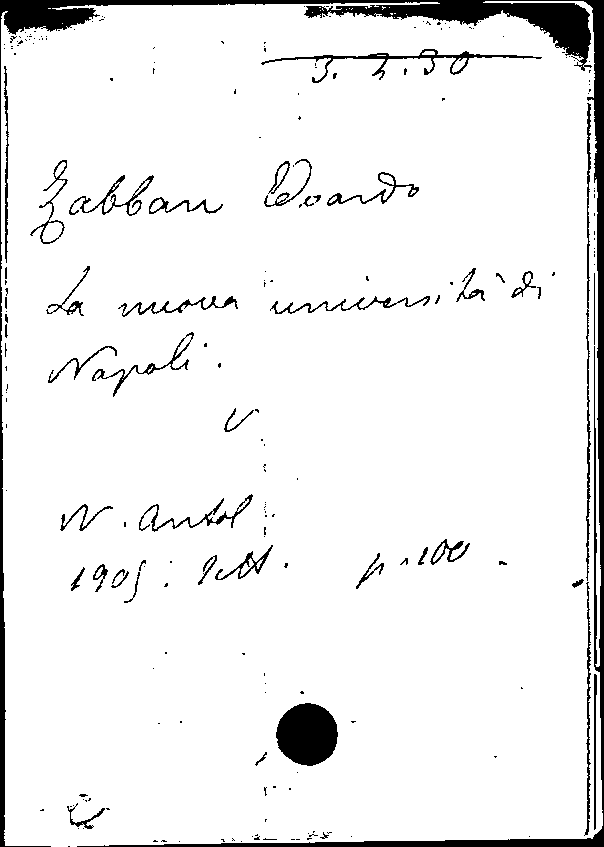 3.2.30
Zabban Edoardo
La nuova università di
Napoli.
V
N. Antol.
1905. Sett. p. 100